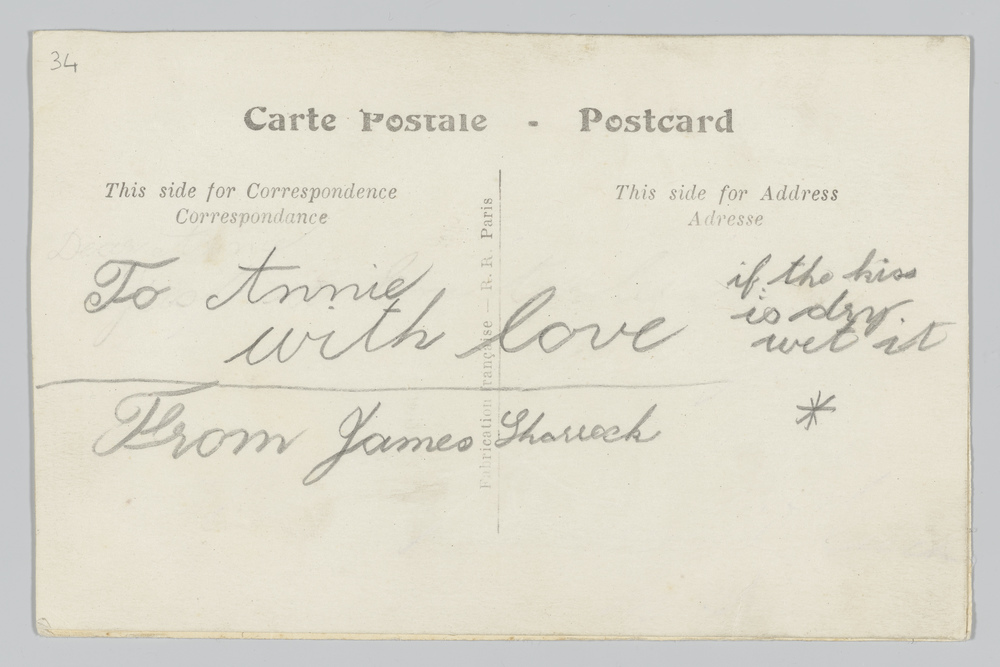 34
Carte Postale - Postcard
This side for Correspondence
Correspondance
This side for Address
Adresse
Fabrication Française — R. R. Paris
To Annie
with love
From James Sharrock
if the kiss
is dry.
wet it
*